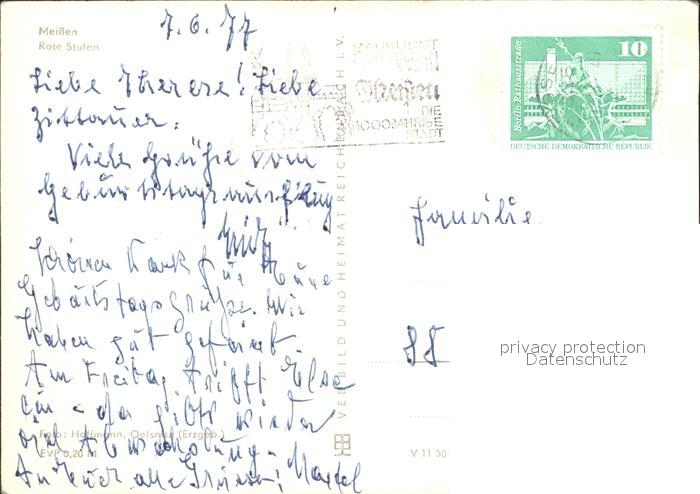 Meißen
Rote Stufen
7.6.77
Liebe Therese! Liebe
Zittauer.
Viele Grüße vom
Geburtstagsausflug
Schönen Dank für Eure
Geburtstagsgrüße. Wir
haben gut gefeiert.
Am Freitag trifft Else
ein - da gibts wieder
viel Abwechslung.
An Euch alle Grüsse!
Foto: Hoffmann, Oelsnitz (Erzgeb.)
EVP 0,20 M
VEB BILD UND HEIMAT REICHENBACH i. V.
V 11 50
BAUKUNST
PORZELLAN
WEIN
Meißen
DIE
1000JÄHRIGE
STADT
10
Berlin, Rathausstraße
DEUTSCHE DEMOKRATISCHE REPUBLIK
Familie
88
privacy protection
Datenschutz